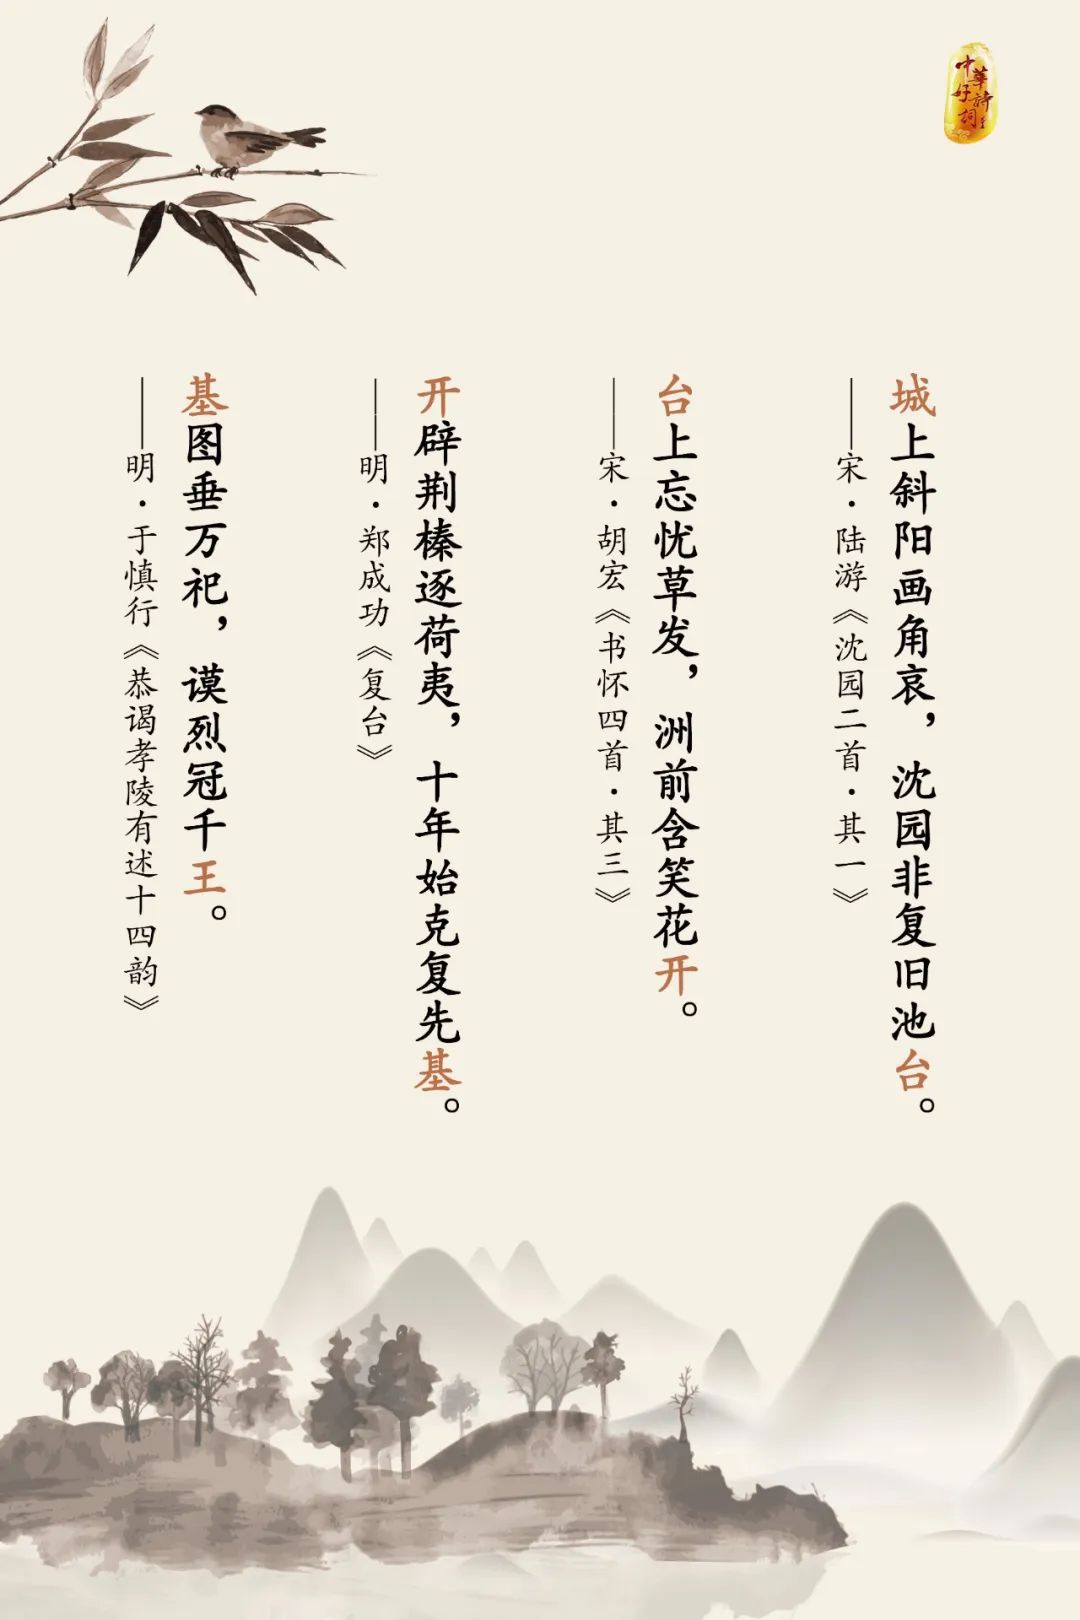 中华好诗词
城上斜阳画角哀，沈园非复旧池台。
——宋·陆游《沈园二首·其一》
台上忘忧草发，洲前含笑花开。
——宋·胡宏《书怀四首·其三》
开辟荆榛逐荷夷，十年始克复先基。
——明·郑成功《复台》
基图垂万祀，谟烈冠千王。
——明·于慎行《恭谒孝陵有述十四韵》